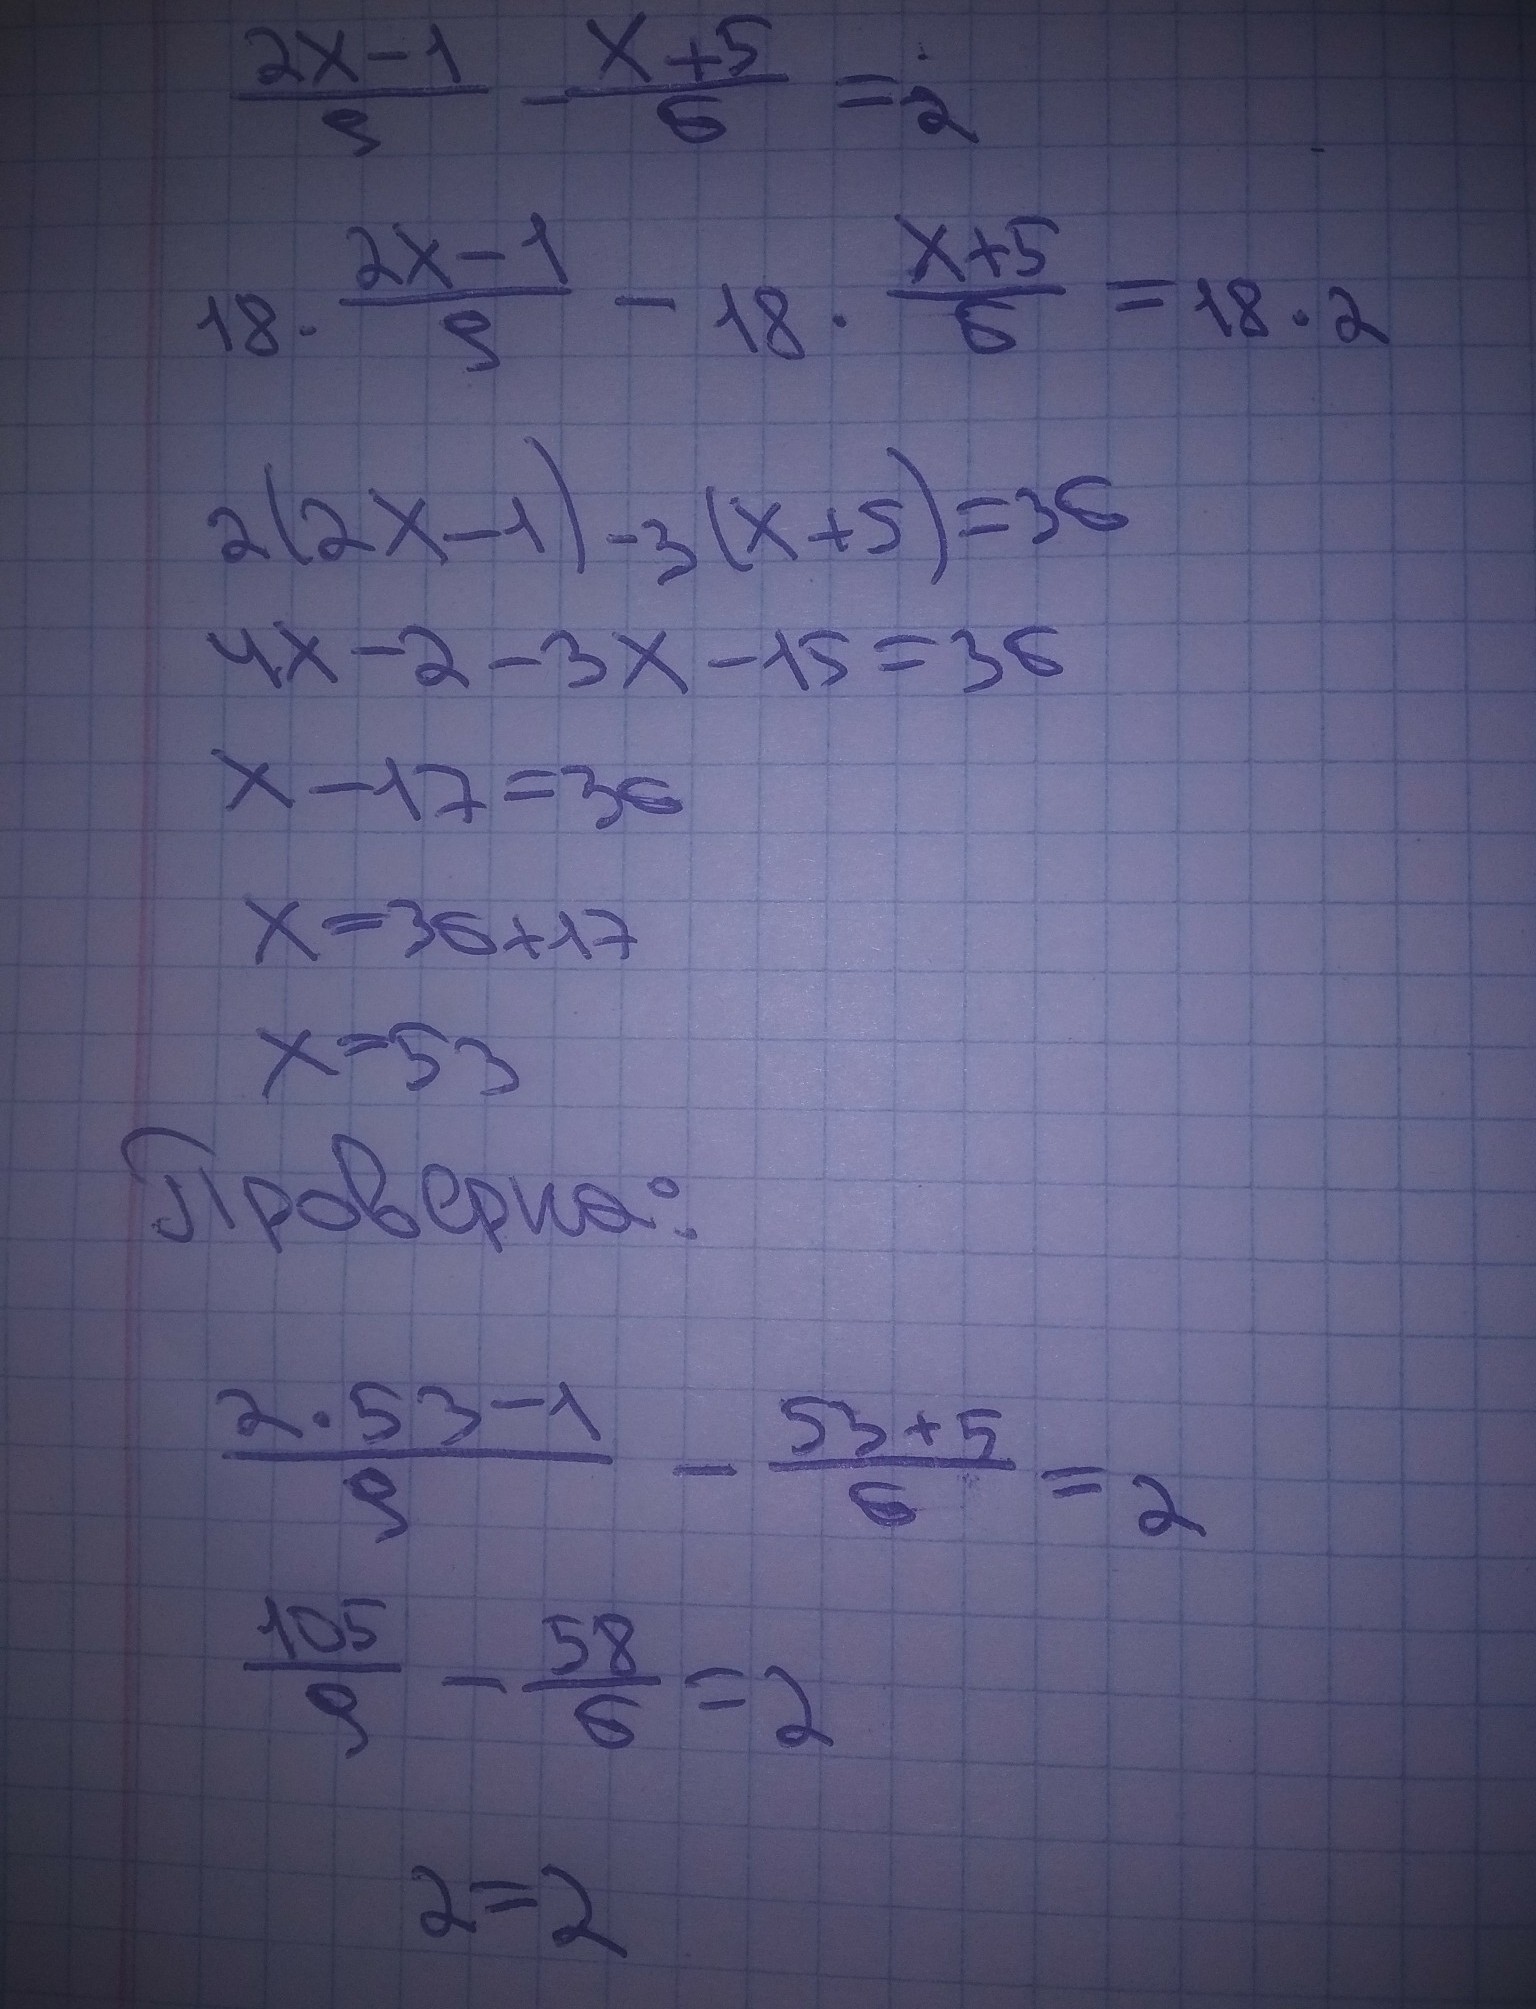 (2x-1)/9 - (x+5)/6 = 2
18 · (2x-1)/9 - 18 · (x+5)/6 = 18 · 2
2(2x-1)-3(x+5)=36
4x-2-3x-15=36
x-17=36
x=36+17
x=53
Проверка:
(2·53-1)/9 - (53+5)/6 = 2
105/9 - 58/6 = 2
2=2